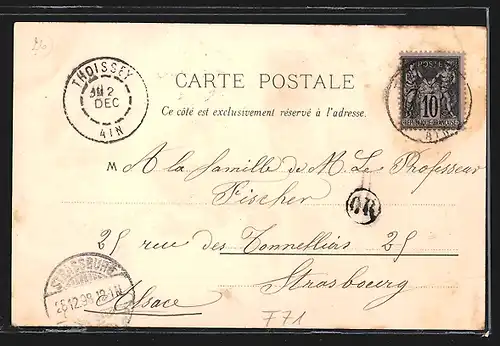 THOISSEY
2
DEC
AIN
CARTE POSTALE
Ce côté est exclusivement réservé à l'adresse.
POSTE
10
M A la famille de M. Le Professeur
Fischer
OR
25 rue des Tonnelliers 25
Strasbourg
Alsace
STRASSBURG
F71